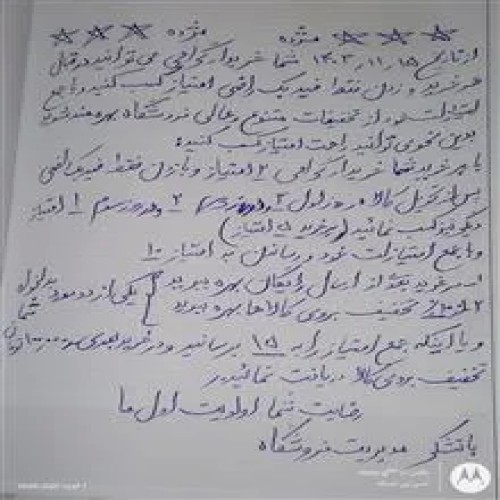 ☆ ☆ ☆ مژده مژده ☆ ☆ ☆
از تاریخ ۱۴۰۳,۱۱,۱۵ شما خریدار گرامی می توانید در قبال
هر خرید و زدن فقط فیدبک راضی امتیاز کسب کنید و با جمع
امتیازات خود از تخفیفات متنوع و عالی فروشگاه بهره مند شوید
بدین نحوی توانید راحت امتیاز کسب کنید:
با هر خرید شما خریدار گرامی ۲ امتیاز و با زدن فقط فیدبک راضی
پس از تحویل کالا در روز اول ۳ و روز دوم ۲ و در روز سوم ۱ امتیاز
دیگر نیز کسب نمائید (هر خرید ۵ امتیاز)
و با جمع امتیازات خود و رساندن به امتیاز ۱۰
در هر خرید بعد از ارسال رایگان بهره ببرید
تخفیف بروی کالاها بهره ببرید
یکی از دو مورد به دلخواه شما
و یا اینکه جمع امتیاز را به ۱۵ برسانید و در خرید بعدی
تخفیف بروی کالا دریافت نمائید
رضایت شما اولویت اول ما
با تشکر مدیریت فروشگاه